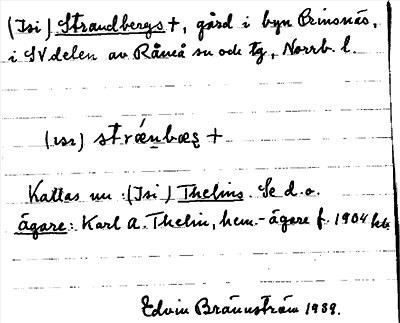 (Isi) Strandbergs +, gård i byn Prinsnäs,
i SV delen av Råneå sn och tg, Norrb. l.
(ısı) strǽn̲bæʂ +
Kallas nu: (Isi) Thelins. Se d.o.
ägare: Karl A. Thelin, hem.-ägare f. 1904
Edvin Brännström 1939.